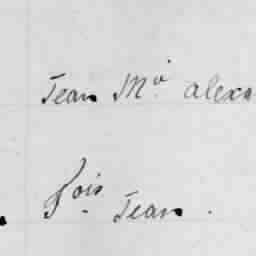 Jean M.ie alexa
fois Jean .